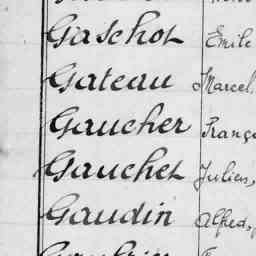 Gaschot Émile
Gateau Marcel,
Gaucher
Gauchet Julien,
Gaudin Alfred,